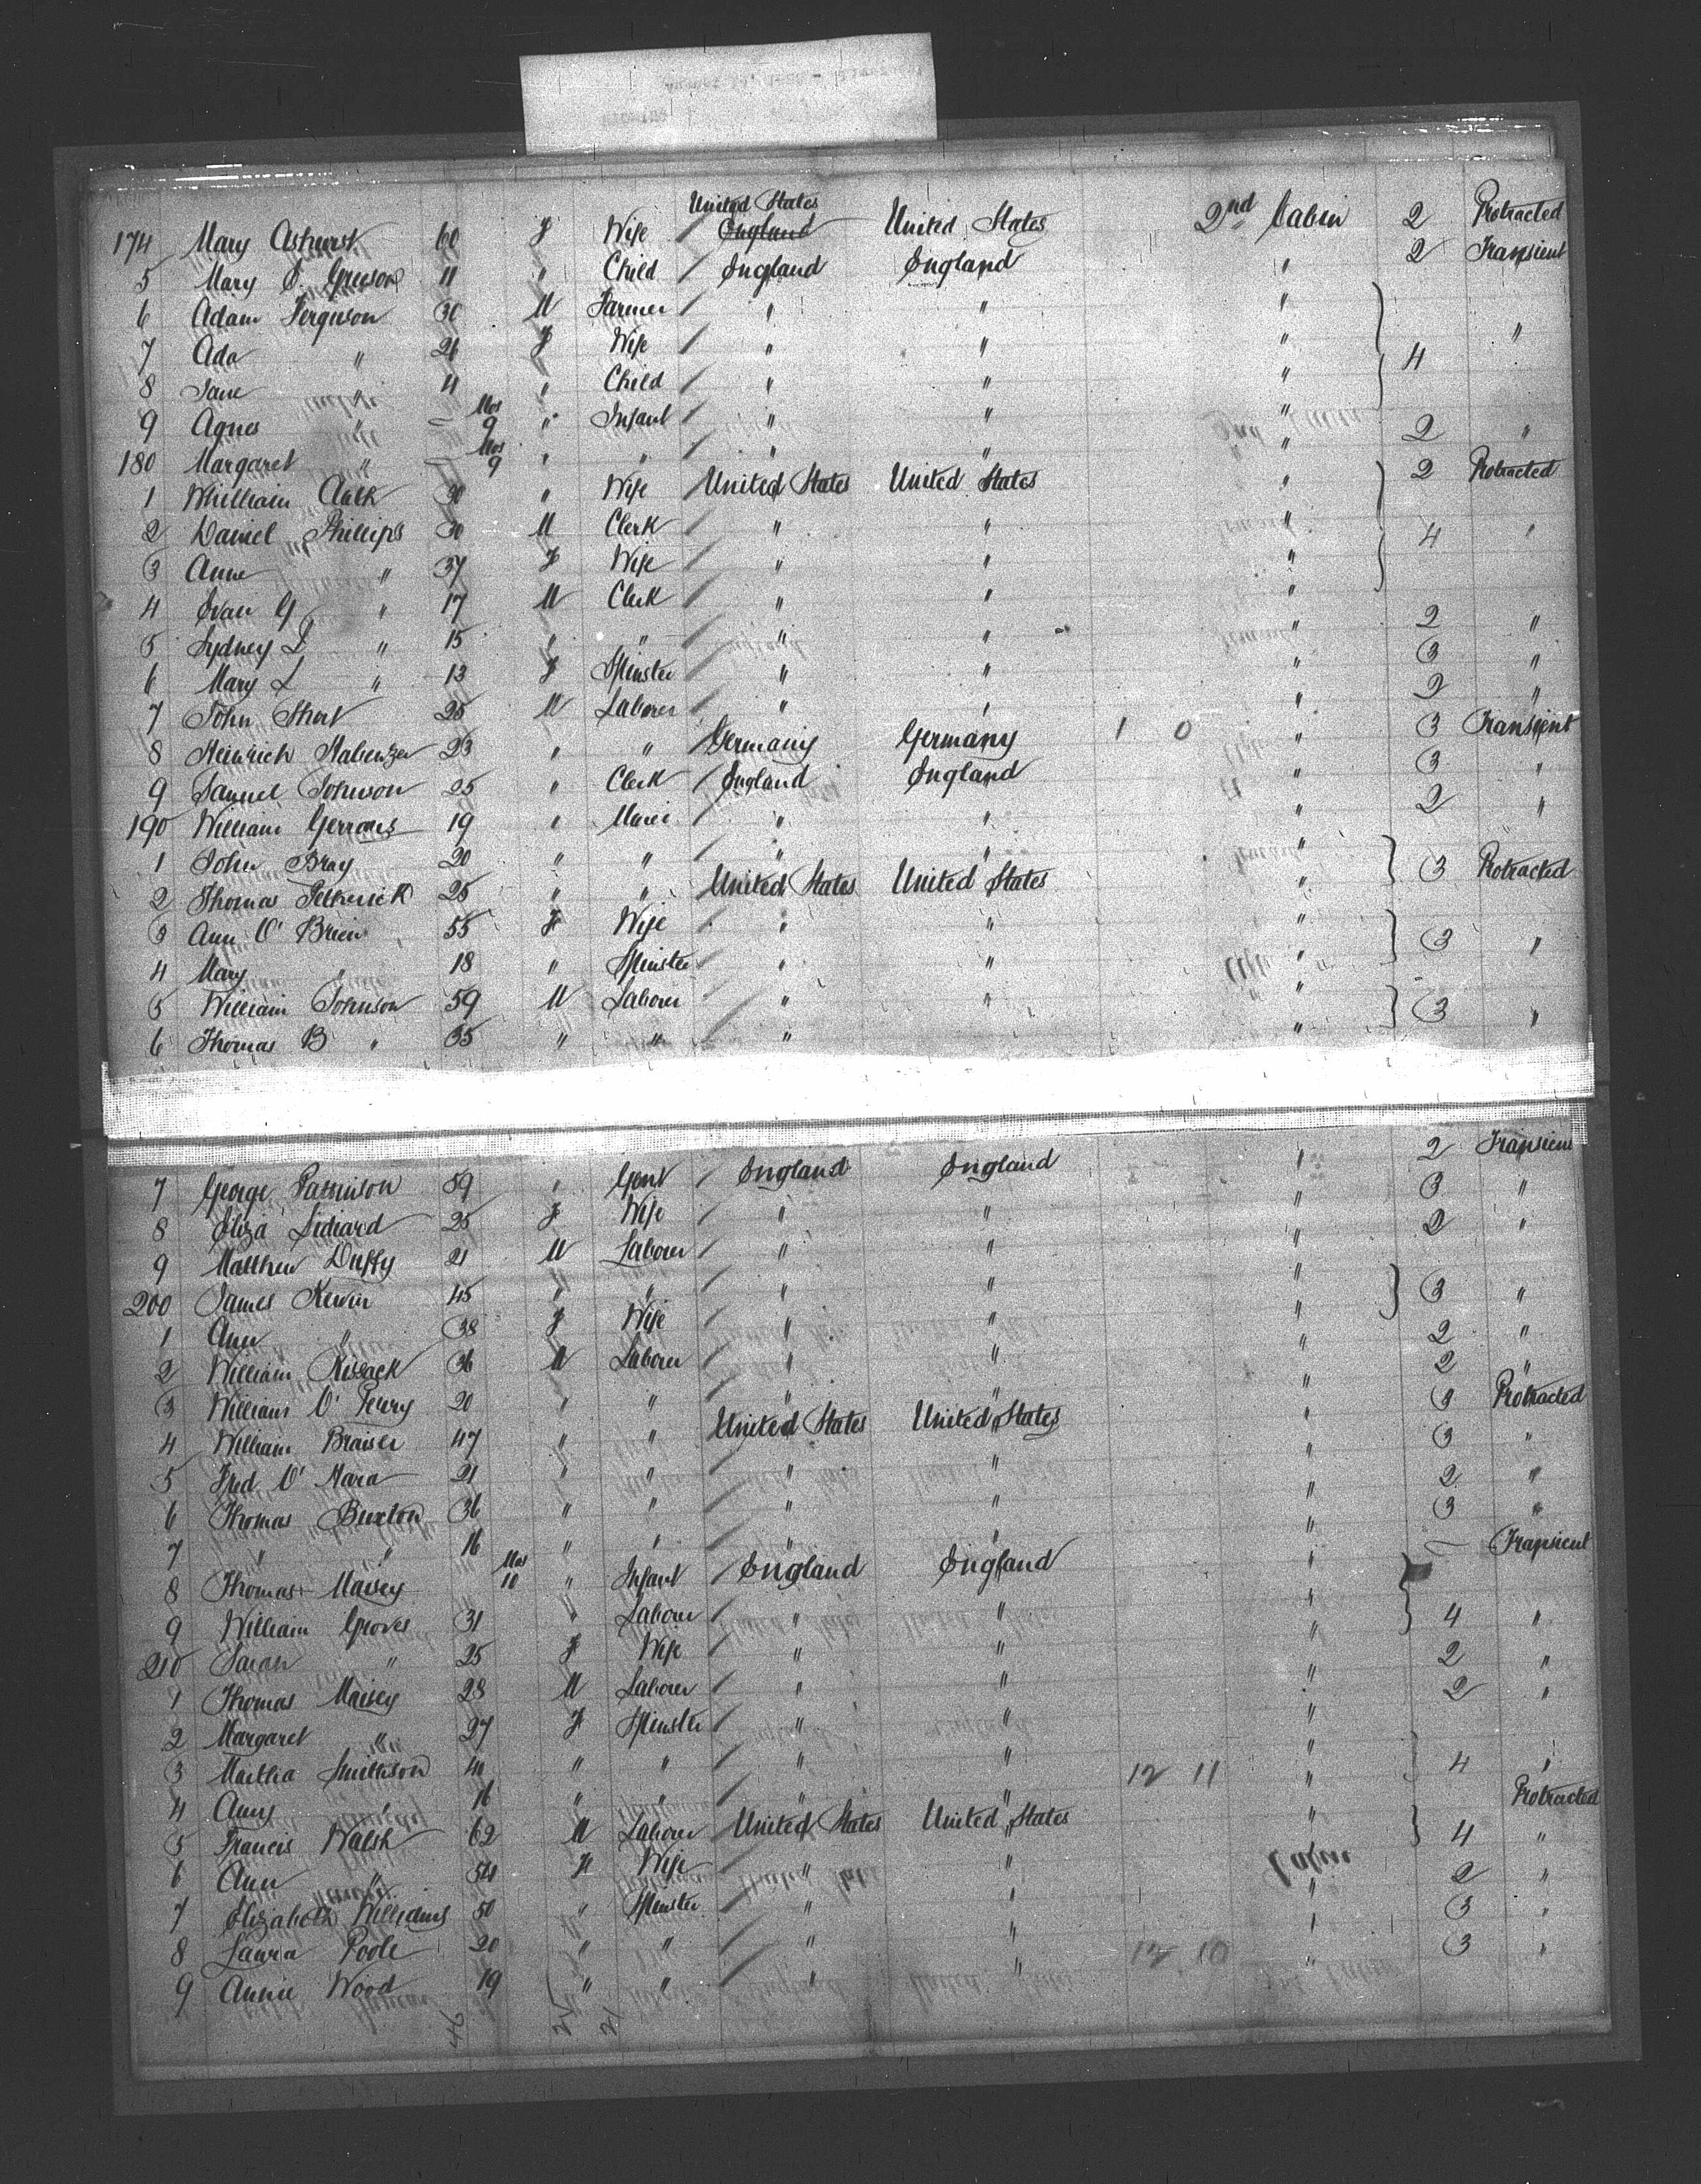 United States
174 Mary Ashurst 60 F Wife / England United States 2nd Cabin 2 Protracted
5 Mary J. Grierson 11 " Child / England England " 2 Transient
6 Adam Ferguson 30 M Farmer / " " "
7 Ada " 26 F Wife / " " " 4 "
8 Jane " 4 " Child / " " "
9 Agnes " – Mos 9 " Infant / " " "
180 Margaret " – Mos 9 " " / " " " 2 "
1 Whilliam 30 " Wife / United States United States " 2 Protracted
2 Daniel Phillips 30 M Clerk / " " "
3 Anne " 37 F Wife / " " " 4 "
4 Ivan G " 17 M Clerk / " " "
5 Sydney L " 15 " " / " " " 2 "
6 Mary L " 13 F Spinster / " " " 3 "
7 John Short 25 M Laborer / " " " 2 "
8 Heinrich 23 " " / Germany Germany 1 0 " 3 Transient
9 Samuel Johnson 25 " Clerk / England England " 3 "
190 William Gerrans 19 " Miner / " " " 2 "
1 John Bray 20 " " / " " "
2 Thomas Petherick 25 " " / United States United States " 3 Protracted
3 Ann O' Brien 55 F Wife / " " "
4 Mary " 18 " Spinster / " " " 3 "
5 William Johnson 59 M Laborer / " " "
6 Thomas B " 35 " " / " " 3 "
7 George Parkinson 59 " Gent / England England " 2 Transient
8 Eliza Lidiard 25 F Wife / " " " 3 "
9 Matthew Duffy 21 M Laborer / " " " 2 "
200 James Kewin 45 " " / " " "
1 Ann " 38 F Wife / " " " 3 "
2 William Kissack 36 M Laborer / " " " 2 "
3 William O' Perry 20 " " / " " " 2 "
4 William Braiser 47 " " / United States United States " 3 Protracted
5 Fred O' Hara 21 " " / " " " 3 "
6 Thomas Buxton 36 " " / " " " 2 "
7 " " 16 " " / " " " 3 "
8 Thomas Maisey Mos 10 " Infant / England England " – Transient
9 William Groves 31 " Laborer / " " "
210 Sarah " 25 F Wife / " " " 4 "
1 Thomas Maisey 28 M Laborer / " " " 2 "
2 Margaret " 27 F Spinster / " " " 2 "
3 Martha Smithson 40 " " / " " 12 11 "
4 Amy " 16 " " / " " " 4 "
5 Francis Walsh 62 M Laborer / United States United States " Protracted
6 Ann " 54 F Wife / " " Cabin 4 "
7 Elizabeth Williams 50 " Spinster / " " " 2 "
8 Laura Poole 20 " " / " " 12 10 " 3 "
9 Annie Wood 19 " " / " " " 3 "
46 25 21